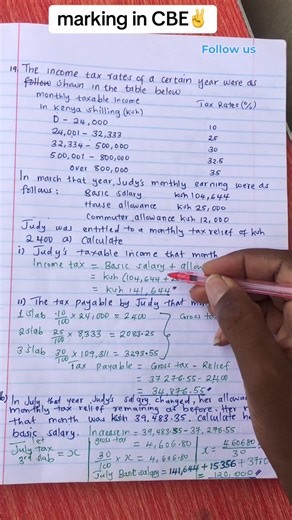 marking in CBE✌
Follow us
19. The income tax rates of a certain year were as
follow shown in the table below
monthly taxable Income
In Kenya shilling (ksh)
Tax Rates (%)
0 - 24,000
10
24,001 - 32,333
25
32,334 - 500,000
30
500,001 - 800,000
32.5
Over 800,000
35
In march that year, Judy's monthly earning were as
follows:
Basic salary ksh 104,644
House allowance ksh 25,000
Commuter allowance ksh 12,000
Judy was entitled to a monthly tax relief of ksh
2400 a) Calculate
i) Judy's taxable income that month
Income tax = Basic salary + allow
= ksh (104,644 +
= ksh 141,644
ii) The tax payable by Judy that m
1st slab 10/100 × 24,000 = 2400
Gross tax
2 slab 25/100 × 8,333 = 2083.25
3 slab 30/100 × 109,311 = 3293.55
Tax payable = Gross tax - Relief
= 37276.55 - 2400
34,876.55
b) In July that year Judy's salary changed, her allowa
monthly tax relief remaining as before. Her
that month was ksh 39,483.35. Calculate h
basic salary.
Increase in gross tax = 39,483.35 - 37,276.55
= 4,606.80
let July tax 3rd slab = x
30/100 x = 4,606.80
x = 460680/30
July Basic salary = 141,644 + 15356 +
= 120,000